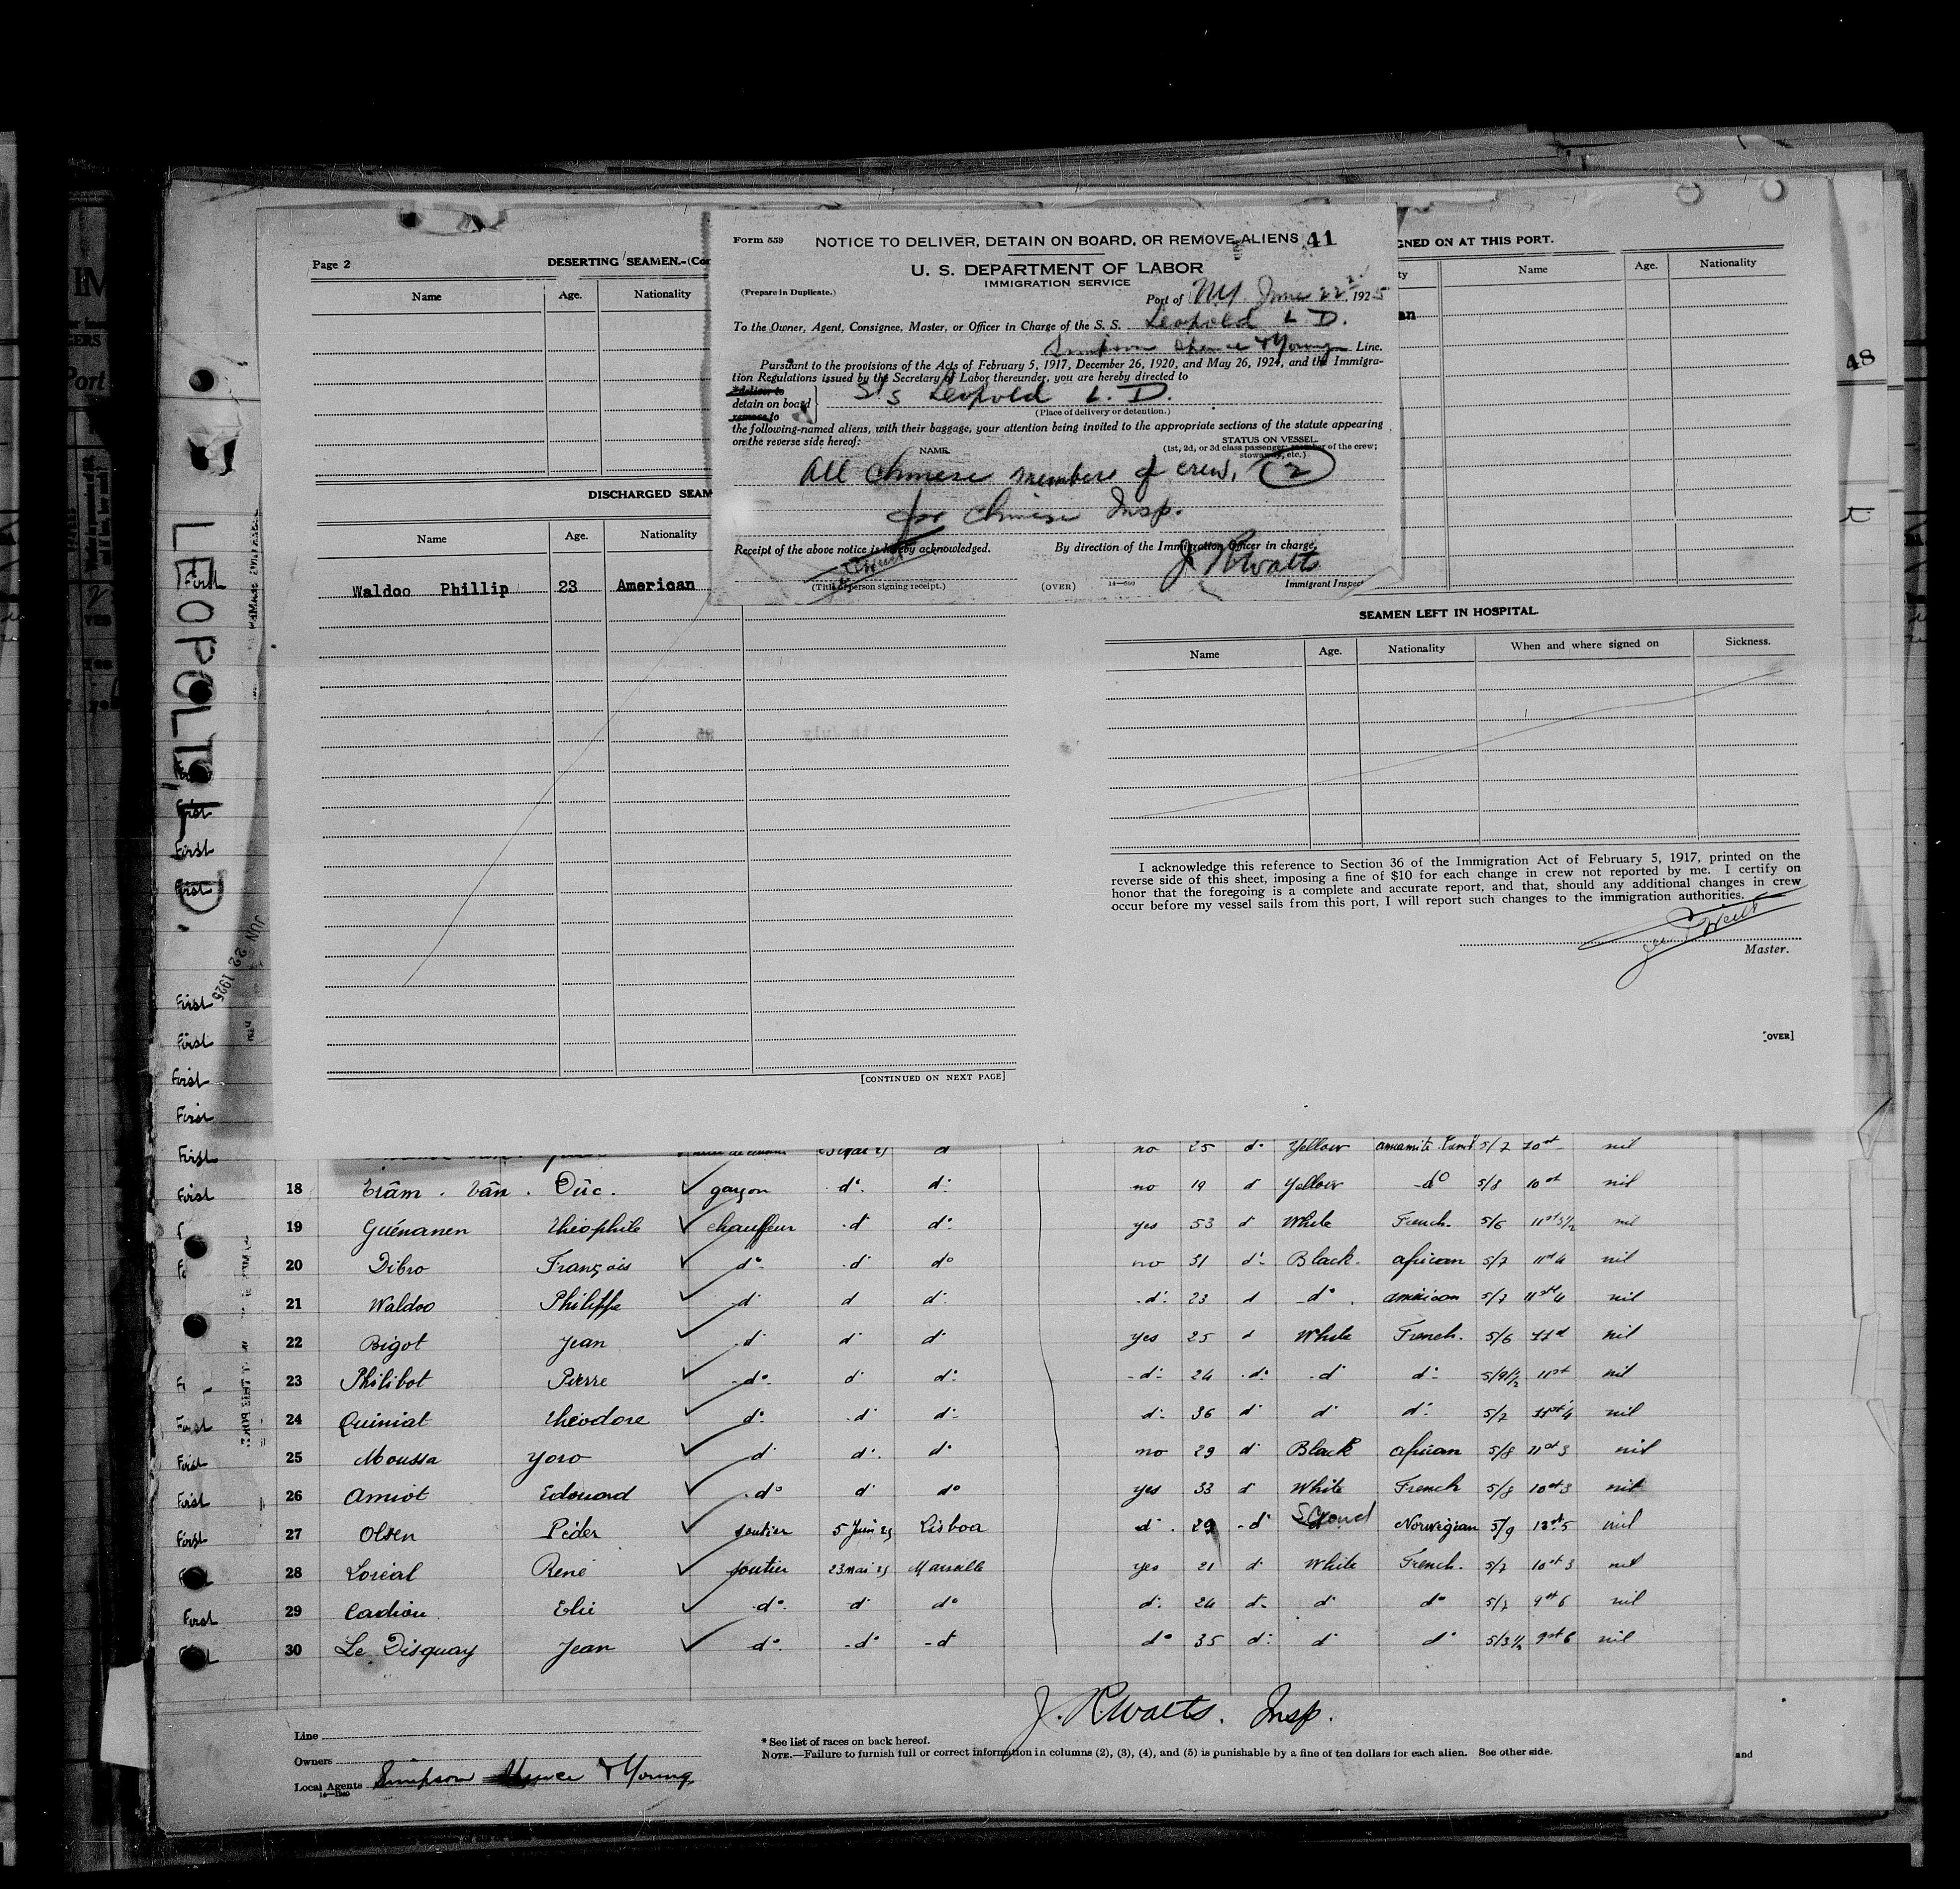 Form 559
NOTICE TO DELIVER, DETAIN ON BOARD, OR REMOVE ALIENS 41
U. S. DEPARTMENT OF LABOR
IMMIGRATION SERVICE
(Prepare in Duplicate.)
Port of N.Y. June 22, 1925
To the Owner, Agent, Consignee, Master, or Officer in Charge of the S. S. Leopold L. D.
Simpson Spence & Young Line.
Pursuant to the provisions of the Acts of February 5, 1917, December 26, 1920, and May 26, 1924, and the Immigra-
tion Regulations issued by the Secretary of Labor thereunder, you are hereby directed to
*deliver to
detain on board
remove to
S/S Leopold L. D.
(Place of delivery or detention.)
the following-named aliens, with their baggage, your attention being invited to the appropriate sections of the statute appearing
on the reverse side hereof:
NAME
STATUS ON VESSEL
(1st, 2d, or 3d class passenger; member of the crew;
stowaway, etc.)
All Chinese members of crew, (2)
for Chinese Insp.
Receipt of the above notice is hereby acknowledged.
By direction of the Immigration Officer in charge,
J. R. Watts
(Title of person signing receipt.)
(OVER)
Immigrant Inspec
Page 2
DESERTING SEAMEN.-(Con
Name Age. Nationality
GNED ON AT THIS PORT.
ty Name Age. Nationality
an
DISCHARGED SEAM
Name Age. Nationality
Waldoo Phillip 23 American
[CONTINUED ON NEXT PAGE]
SEAMEN LEFT IN HOSPITAL.
Name Age. Nationality When and where signed on Sickness.
I acknowledge this reference to Section 36 of the Immigration Act of February 5, 1917, printed on the
reverse side of this sheet, imposing a fine of $10 for each change in crew not reported by me. I certify on
honor that the foregoing is a complete and accurate report, and that, should any additional changes in crew
occur before my vessel sails from this port, I will report such changes to the immigration authorities.
Master.
[OVER]
48
LEOPOLD L.D.
JUN 22 1925
First
First
First
First
First
First
First
First
First
no 25 d° Yellow 5/7 10st nil
First 18 Trâm . Văn . Dúc. garçon d° d° no 19 d Yellow d° 5/8 10st nil
19 Guénanen Théophile chauffeur d° d° yes 53 d White French. 5/6 11st3½ nil
20 Dibro François d° d° d° no 31 d° Black african 5/7 11st4 nil
21 Waldoo Philippe d° d d° d° 23 d d° american 5/7 11st4 nil
22 Bigot Jean d° d° d° yes 25 d White French. 5/6 11st nil
23 Philibot Pierre d° d° d° d° 24 d° d° d° 5/9½ 11st nil
First 24 Quiniat Théodore d° d° d° d° 36 d° d° d° 5/7 11st4 nil
First 25 Moussa Yoro d° d° d° no 29 d° Black african 5/8 11st3 nil
First 26 Amiot Edouard d° d° d° yes 33 d White French 5/8 10st3 nil
First 27 Olsen Péder soutier 5 Juin 25 Lisboa d° 29 d° Scand Norwegian 5/9 12st5 nil
28 Loréal René soutier 23 mai 25 Marseille yes 21 d° White French. 5/7 10st3 nil
First 29 Cadiou Elie d° d° d° d° 24 d° d° d° 5/7 9st6 nil
30 Le Disquay Jean d° d° d° d° 35 d° d° d° 5/3½ 9st6 nil
J. R. Watts. Insp.
Line
Owners
Local Agents Simpson Spence & Young
14—1240
* See list of races on back hereof.
NOTE.—Failure to furnish full or correct information in columns (2), (3), (4), and (5) is punishable by a fine of ten dollars for each alien. See other side.
and